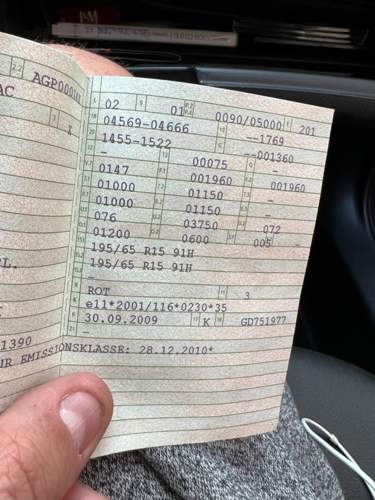 AGP000
AC
X
02 01 0090/05000 201
04569-04666 --1769
1455-1522 --001360
- 00075 -
0147 001960 001960
01000 01150 -
01000 01150 -
076 03750 072
01200 0600 005 -
195/65 R15 91H
195/65 R15 91H
-
ROT 3
e11*2001/116*0230*35
30.09.2009 K GD751977
-
L.
1390
UR EMISSIONSKLASSE: 28.12.2010*